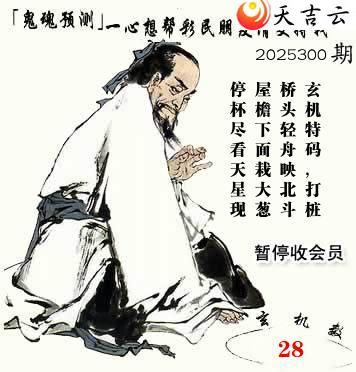 天吉云
「鬼魂预测」一心想帮彩民朋友
2025300 期
停屋桥玄
杯檐头机
尽下轻特
看面舟码
天栽映，
星大北打
现葱斗桩
暂停收会员
玄机
28